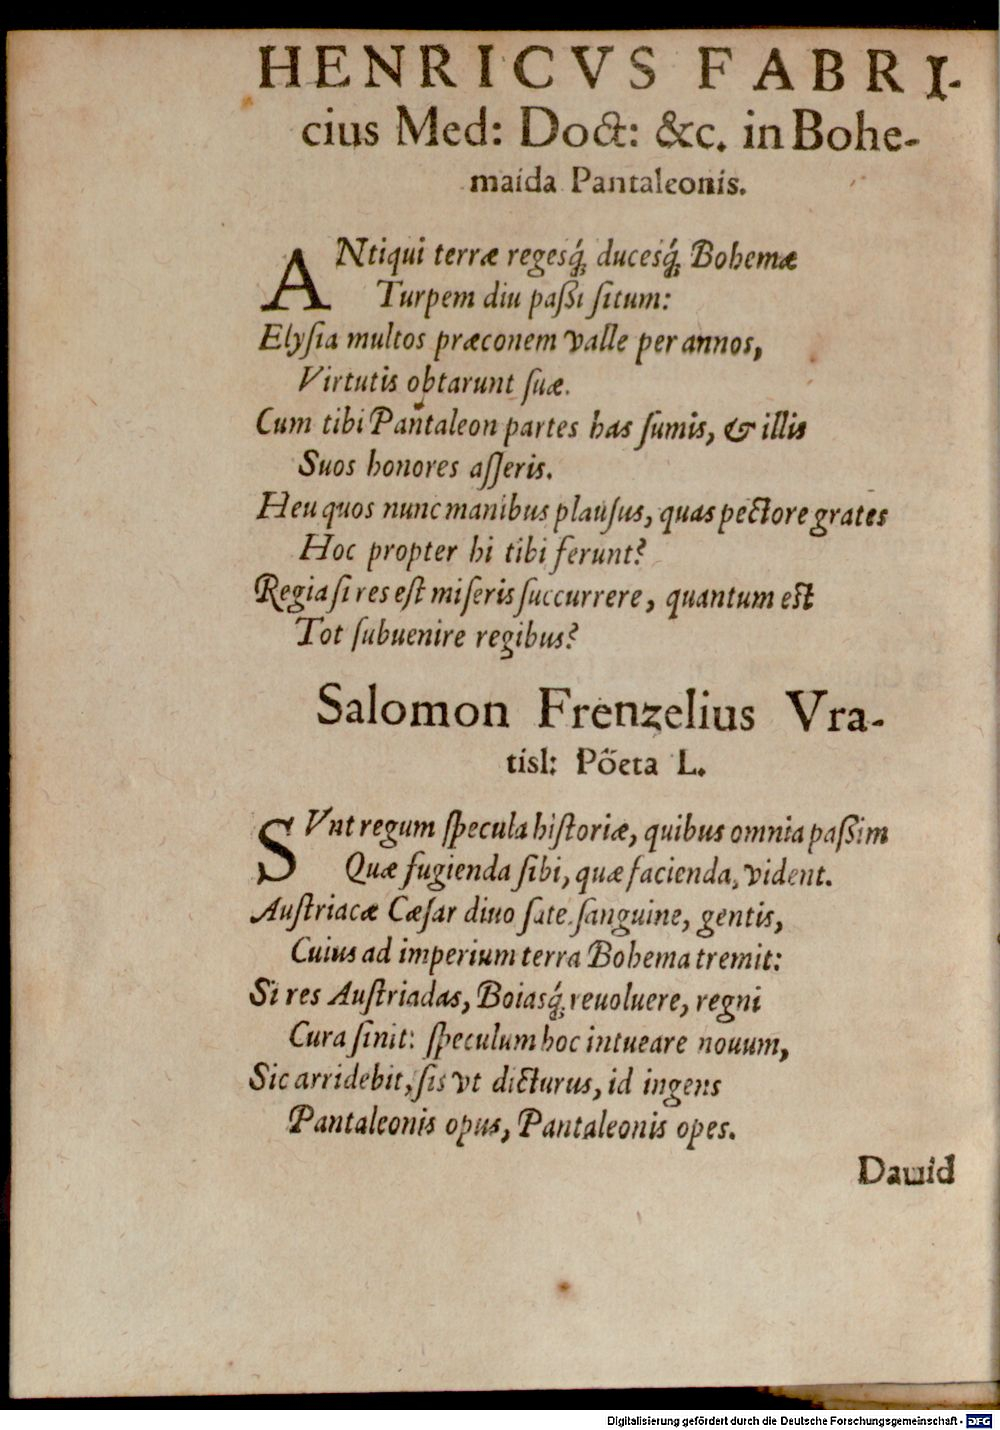 HENRICVS FABRI-
cius Med: Doct: &c. in Bohe-
maida Pantaleonis.
ANtiqui terræ regesq́; ducesq́; Bohemæ
Turpem diu paßi ſitum:
Elyſia multos præconem valle per annos,
Virtutis obtarunt ſuæ.
Cum tibi Pantaleon partes has ſumis, & illis
Suos honores aſſeris.
Heu quos nunc manibus plauſus, quas pectore grates
Hoc propter hi tibi ferunt?
Regia ſi res eſt miſeris ſuccurrere, quantum est
Tot ſubuenire regibus?
Salomon Frenzelius Vra-
tisl: Pöeta L.
SVnt regum ſpecula hiſtoriæ, quibus omnia paßim
Quæ fugienda ſibi, quæ facienda, vident.
Auſtriacæ Cæſar diuo ſate ſanguine, gentis,
Cuius ad imperium terra Bohema tremit:
Si res Auſtriadas, Boiasq́; reuoluere, regni
Cura ſinit: ſpeculum hoc intueare nouum,
Sic arridebit, ſis vt dicturus, id ingens
Pantaleonis opus, Pantaleonis opes.
Dauid
Digitalisierung gefördert durch die Deutsche Forschungsgemeinschaft - DFG